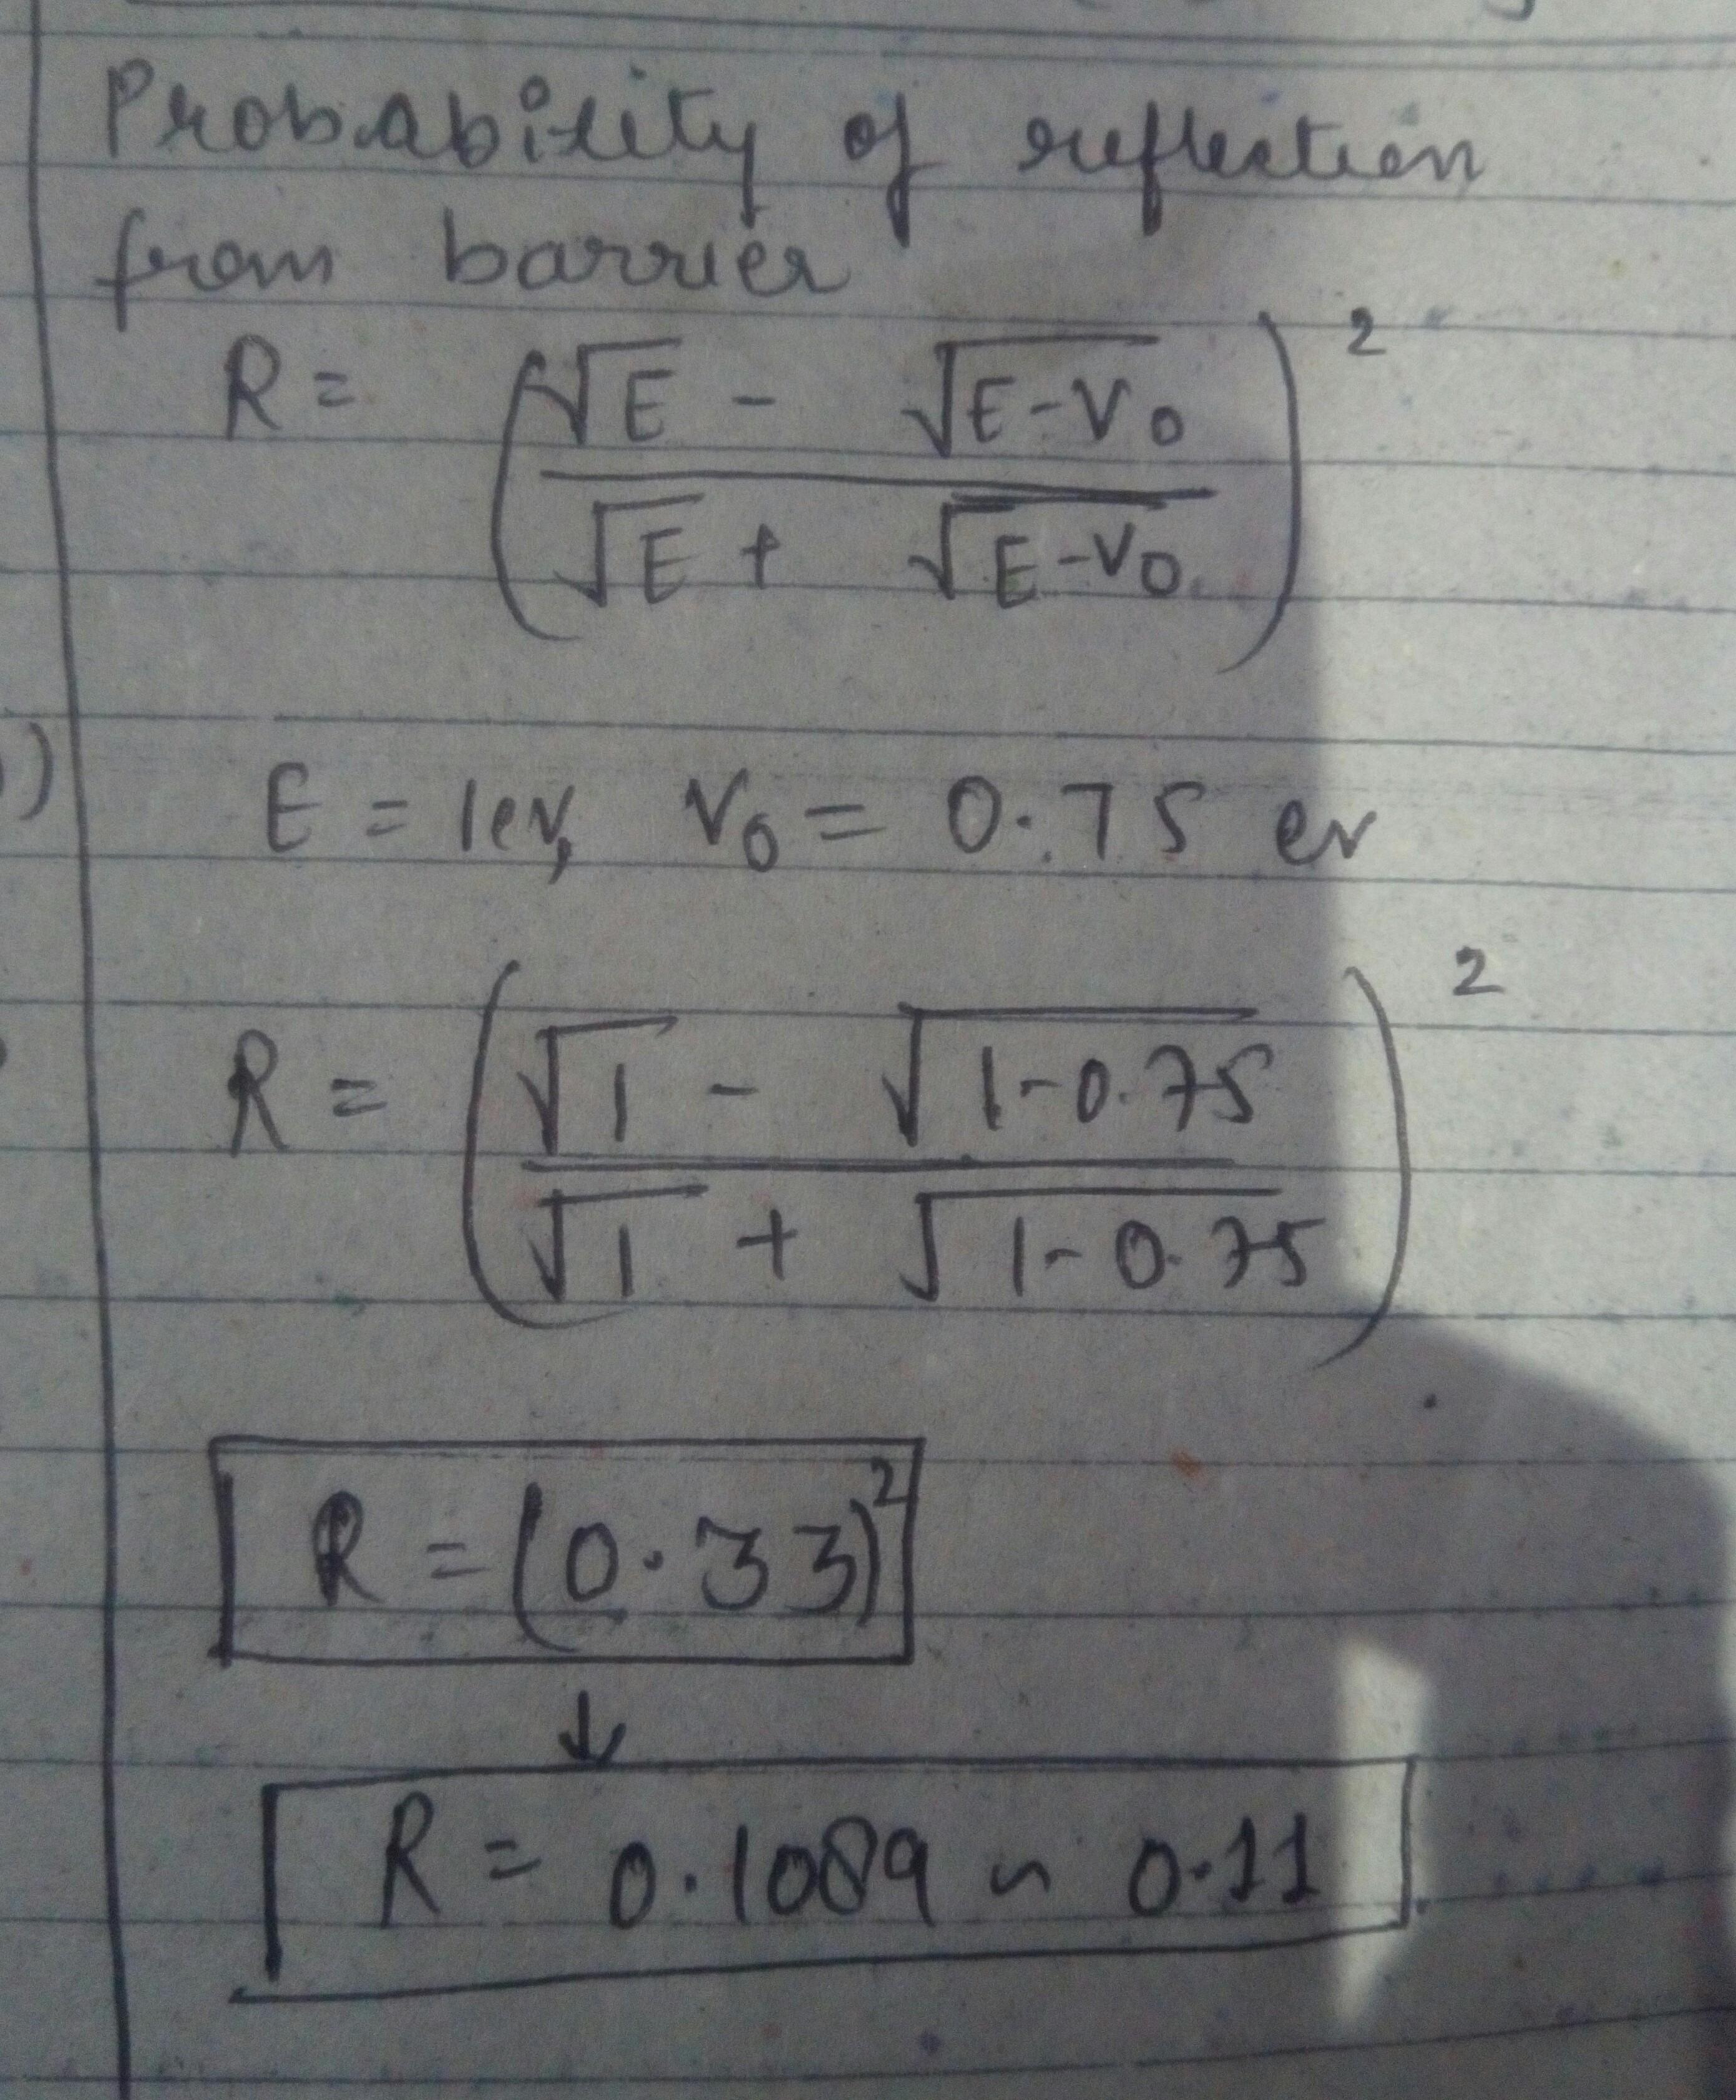 Probability of reflection
from barrier
R = (√E - √E-V₀ / √E + √E-V₀)²
) E = 1ev, V₀ = 0.75 ev
R = (√1 - √1-0.75 / √1 + √1-0.75)²
R = (0.33)²
↓
R = 0.1089 ~ 0.11